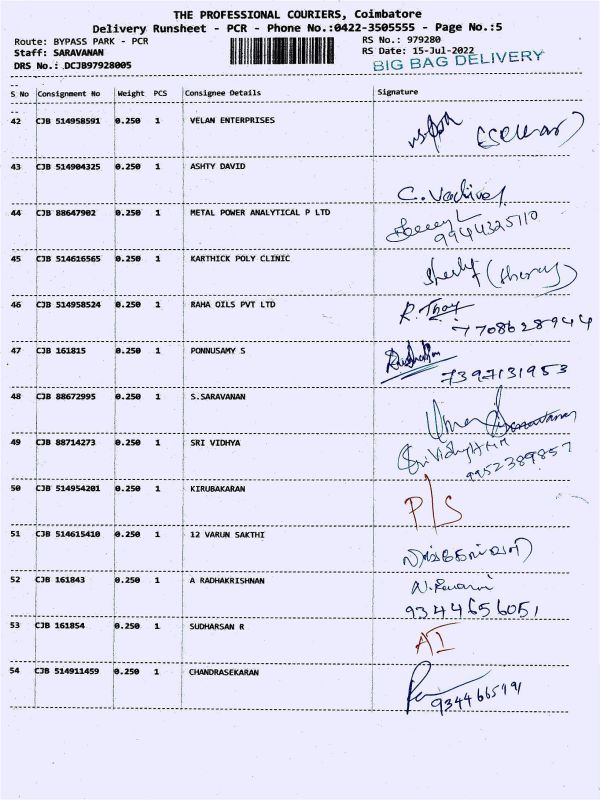 THE PROFESSIONAL COURIERS, Coimbatore
Delivery Runsheet - PCR - Phone No.:0422-3505555 - Page No.:5
Route: BYPASS PARK - PCR RS No.: 979280
Staff: SARAVANAN RS Date: 15-Jul-2022
DRS No.: DCJB97928005 BIG BAG DELIVERY
S No Consignment No Weight PCS Consignee Details Signature
42 CJB 514958591 0.250 1 VELAN ENTERPRISES
43 CJB 514904325 0.250 1 ASHTY DAVID
C. Vadivel
44 CJB 88647902 0.250 1 METAL POWER ANALYTICAL P LTD
9944325110
45 CJB 514616565 0.250 1 KARTHICK POLY CLINIC
46 CJB 514958524 0.250 1 RAHA OILS PVT LTD
7708628944
47 CJB 161815 0.250 1 PONNUSAMY S
7397131953
48 CJB 88672995 0.250 1 S.SARAVANAN
49 CJB 88714273 0.250 1 SRI VIDHYA
9952389857
50 CJB 514954201 0.250 1 KIRUBAKARAN
P/S
51 CJB 514615410 0.250 1 12 VARUN SAKTHI
52 CJB 161843 0.250 1 A RADHAKRISHNAN
9344656051
53 CJB 161854 0.250 1 SUDHARSAN R
AI
54 CJB 514911459 0.250 1 CHANDRASEKARAN